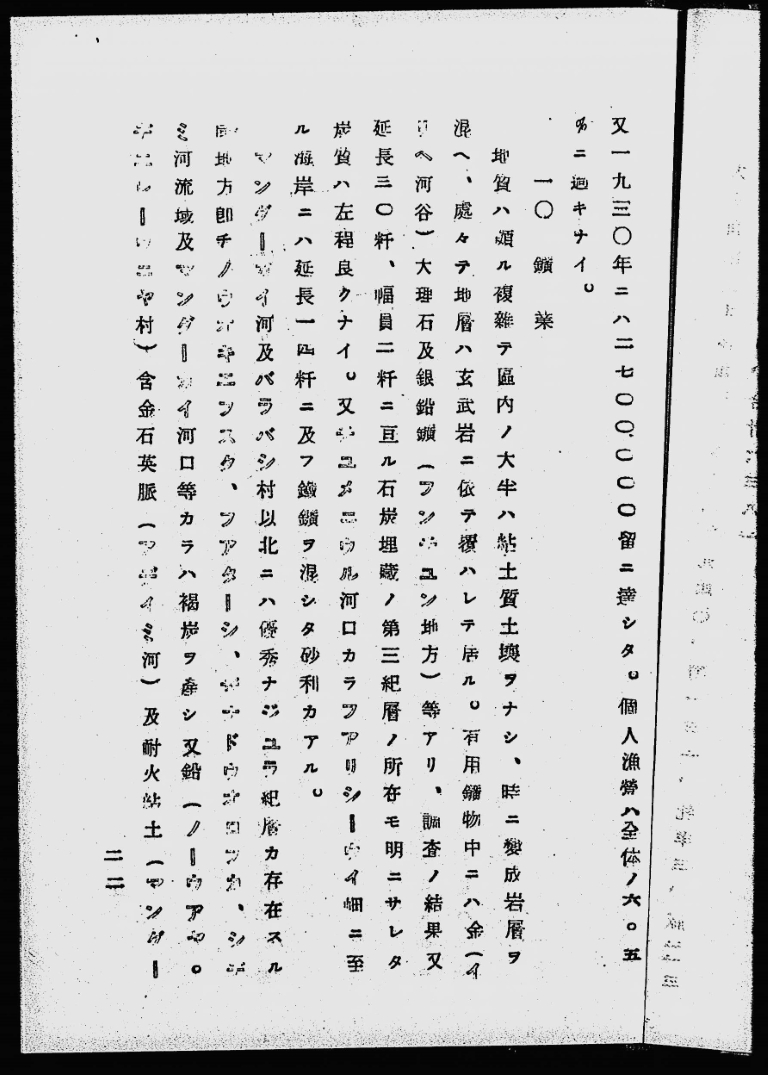 又一九三〇年ニハ二七〇〇、〇〇〇留ニ達シタ。個人漁營ハ全体ノ六。五
%ニ過キナイ。
一〇 鑛業
地質ハ頗ル複雜テ區内ノ大半ハ粘土質土壤ヲナシ、時ニ變成岩層ヲ
混ヘ、處々テ地層ハ玄武岩ニ依テ覆ハレテ居ル。有用鑛物中ニハ金(イ
リヘ河谷)大理石及銀鉛鑛(フンヂユン地方)等アリ、調査ノ結果又
延長三〇粁、幅員二粁ニ亘ル石炭埋藏ノ第三紀層ノ所在モ明ニサレタ
炭質ハ左程良クナイ。又チユメニウル河口カラフアリシーウイ岬ニ至
ル海岸ニハ延長一四粁ニ及フ鐵鑛ヲ混シタ砂利カアル。
マングーマイ河及バラバシ村以北ニハ優秀ナジユラ紀層カ存在スル
同地方卽チノウオキエンスク、フアターシ、
ミ河流域及マングーカイ河口等カラハ褐炭ヲ產シ又鉛(ノーウアヤ。
村)含金石英脈(アヂイミ河)及耐火粘土(マングー
二二